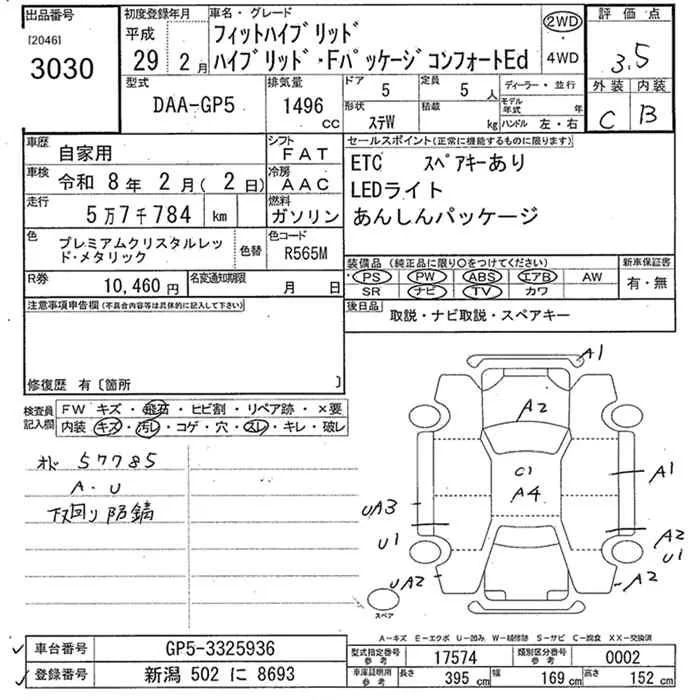 出品番号
[2046]
3030
初度登録年月
平成
29年 2月
車名・グレード
フィットハイブリッド
ハイブリッド・FパッケージコンフォートEd
2WD
4WD
評価点
3.5
外装 内装
C B
型式
DAA-GP5
排気量
1496
cc
ドア
5
定員
5人
形状
ステW
積載
kg
ディーラー・並行
モデル年式 年
ハンドル 左・右
車歴
自家用
シフト
FAT
車検
令和 8年 2月( 2日)
冷房
AAC
走行
5万7千784 km
燃料
ガソリン
色
プレミアムクリスタルレッド・メタリック
色替
色コード
R565M
R券
10,460円
名変通知期限
月 日
セールスポイント(正常に機能するものに限ります)
ETC スペアキーあり
LEDライト
あんしんパッケージ
装備品(純正品に限り○をつけてください)
PS PW ABS エアB AW
SR ナビ TV カワ
新車保証書
有・無
後日品
取説・ナビ取説・スペアキー
注意事項申告欄(不具合内容等は具体的に記入して下さい)
修復歴 有〔箇所 〕
検査員記入欄
FW キズ・飛石・ヒビ割・リペア跡・×要
内装 キズ・汚レ・コゲ・穴・スレ・キレ・破レ
オド 57785
A・U
下回り防錆
A1
A2
C1
A4
A1
UA3
U1
A2
U1
UA2
A2
スペア
A-キズ E-エクボ U-凹み W-補修跡 S-サビ C-腐食 XX-交換済
車台番号
GP5-3325936
登録番号
新潟 502 に 8693
型式指定番号
参考
17574
類別区分番号
参考
0002
車庫証明用
参考
長さ 395 cm 幅 169 cm 高さ 152 cm